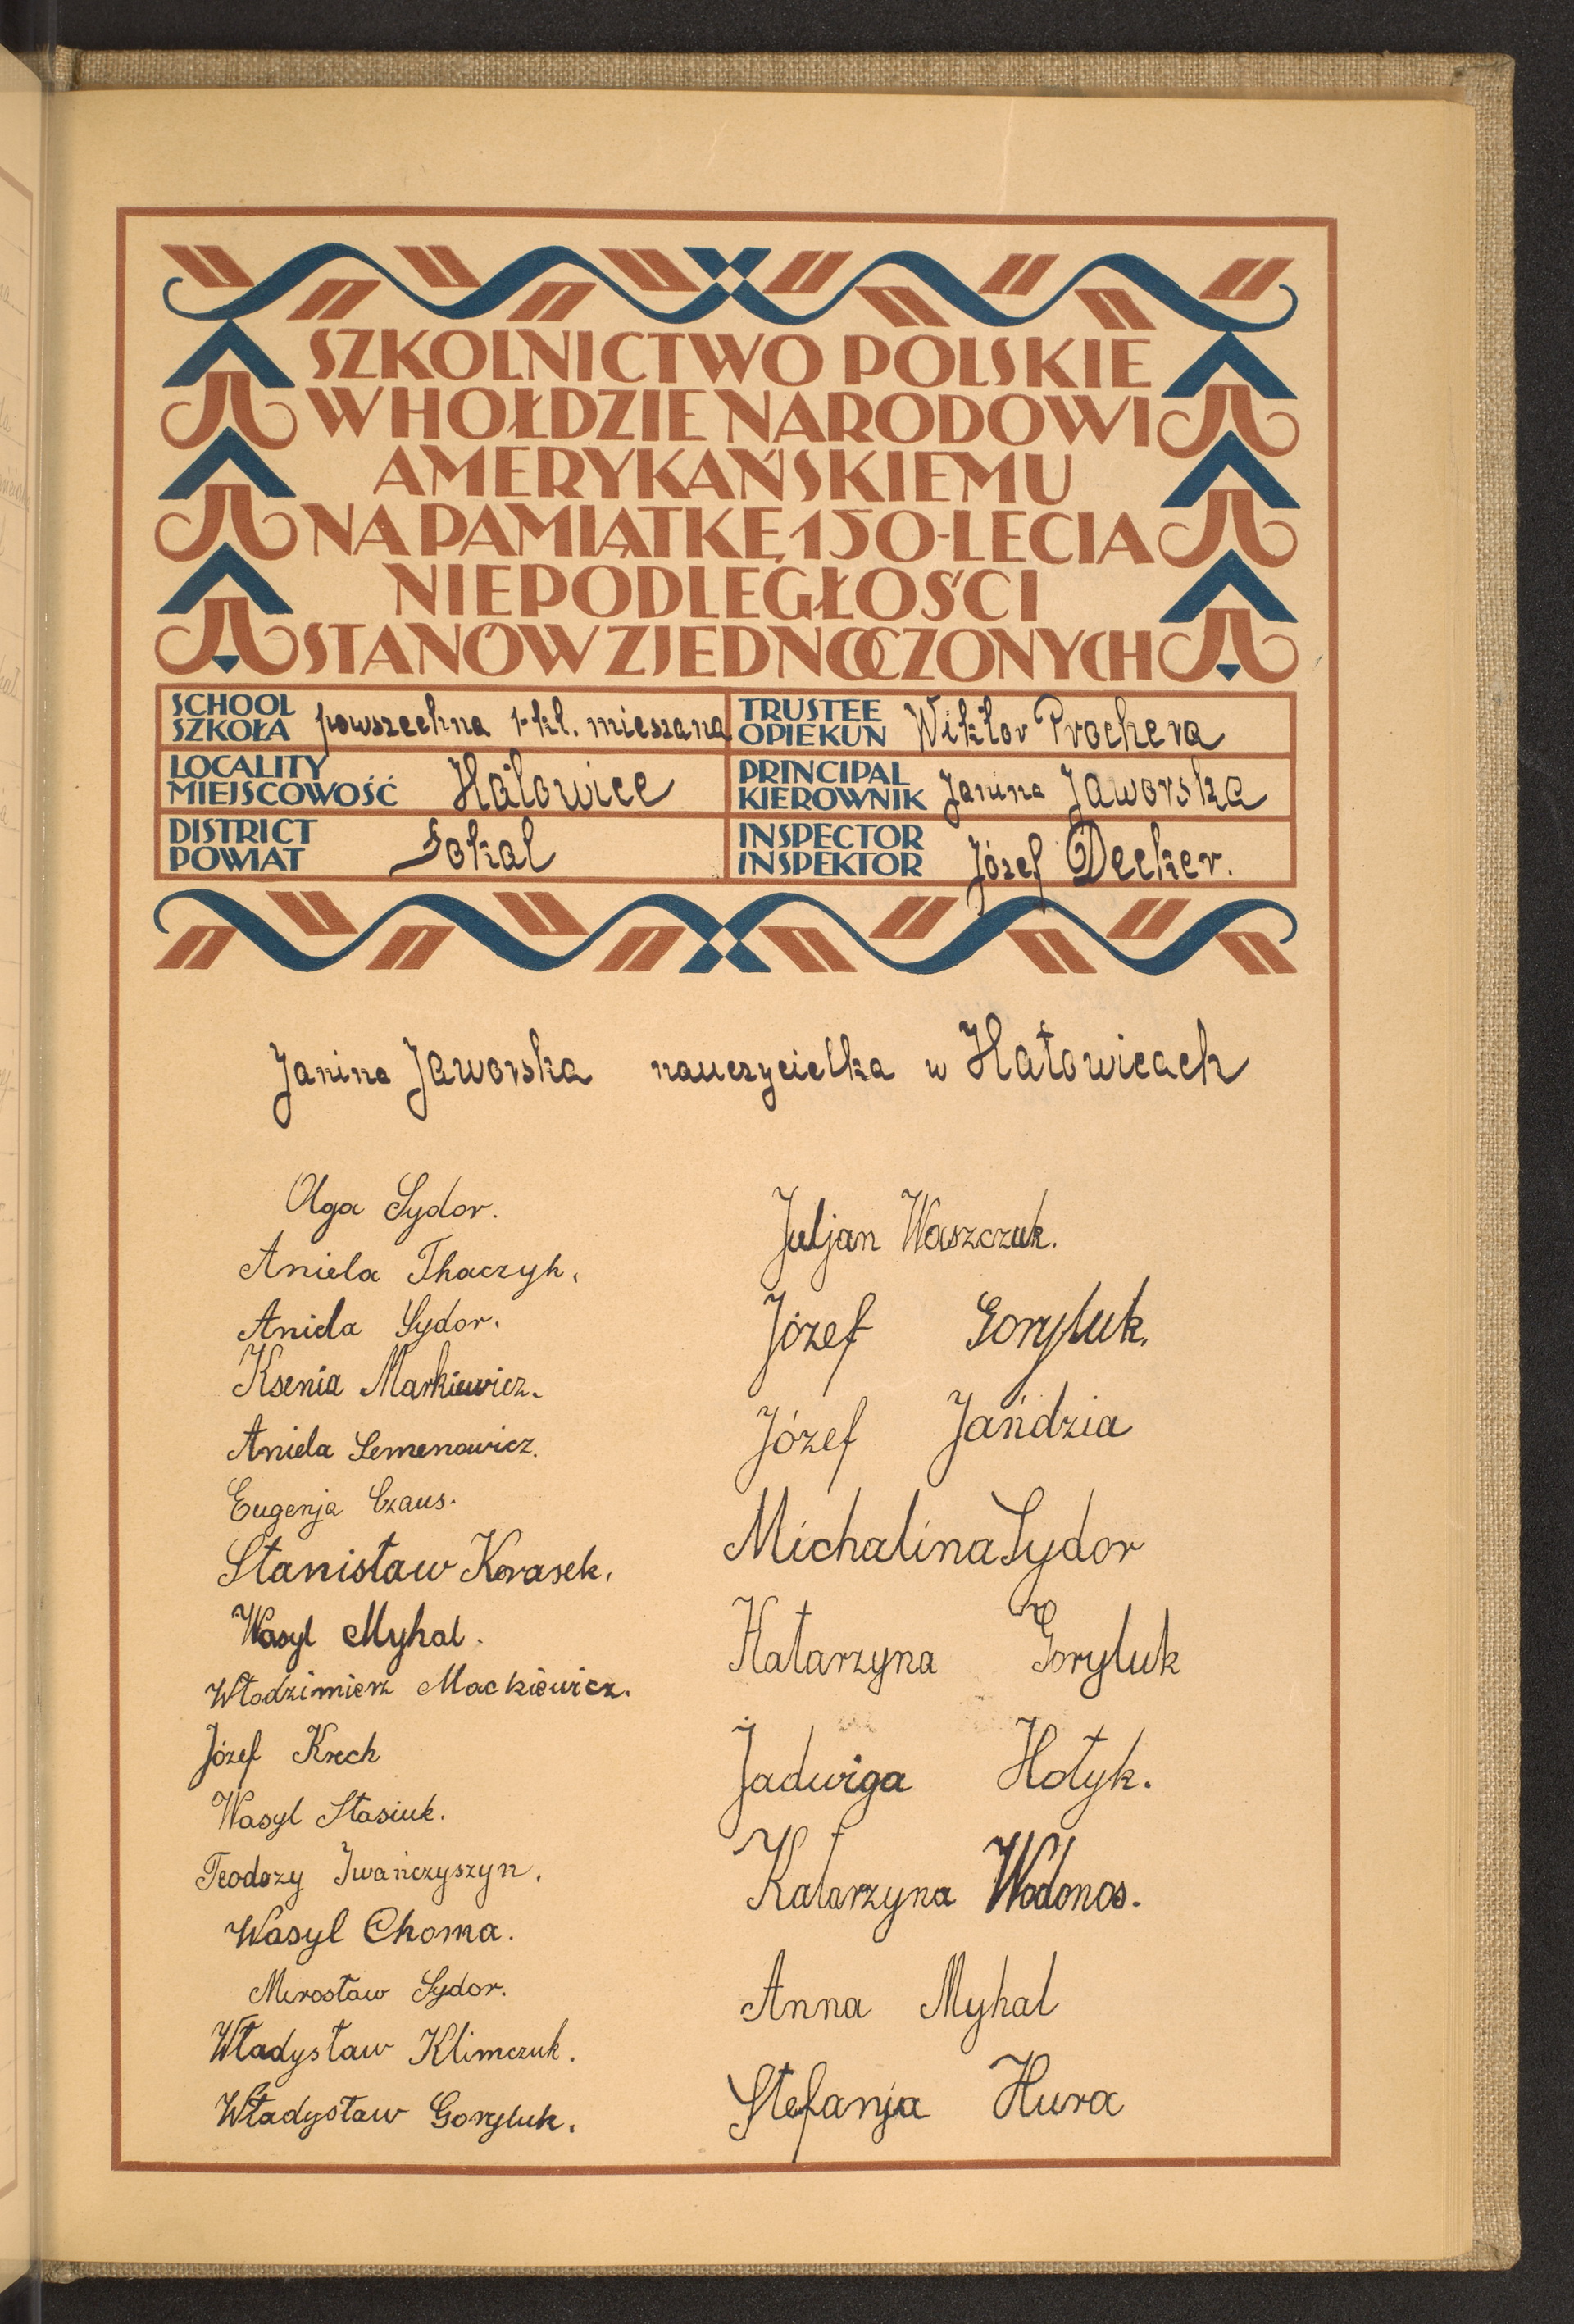 SZKOLNICTWO POLSKIE
W HOŁDZIE NARODOWI
AMERYKAŃSKIEMU
NA PAMIĄTKĘ 150-LECIA
NIEPODLEGŁOŚCI
STANÓW ZJEDNOCZONYCH
SCHOOL
SZKOŁA powszechna 1-kl. mieszana
TRUSTEE
OPIEKUN Wiktor Prochera
LOCALITY
MIEJSCOWOŚĆ Hatowice
PRINCIPAL
KIEROWNIK Janina Jaworska
DISTRICT
POWIAT Sokal
INSPECTOR
INSPEKTOR Józef Decker.
Janina Jaworska nauczycielka w Hatowicach
Olga Sydor.
Aniela Tkaczyk.
Aniela Sydor.
Ksenia Markiewicz.
Aniela Semenowicz.
Eugenja Czaus.
Stanisław Korasek.
Wasyl Myhal.
Włodzimierz Mackiewicz.
Józef Krech
Wasyl Stasiuk.
Teodozy Iwańczyszyn.
Wasyl Choma.
Mirosław Sydor.
Władysław Klimczuk.
Władysław Goryluk.
Juljan Waszczuk.
Józef Goryluk.
Józef Jańdzia
Michalina Sydor
Katarzyna Goryluk
Jadwiga Hołyk.
Katarzyna Wodonos.
Anna Myhal
Stefanja Hura